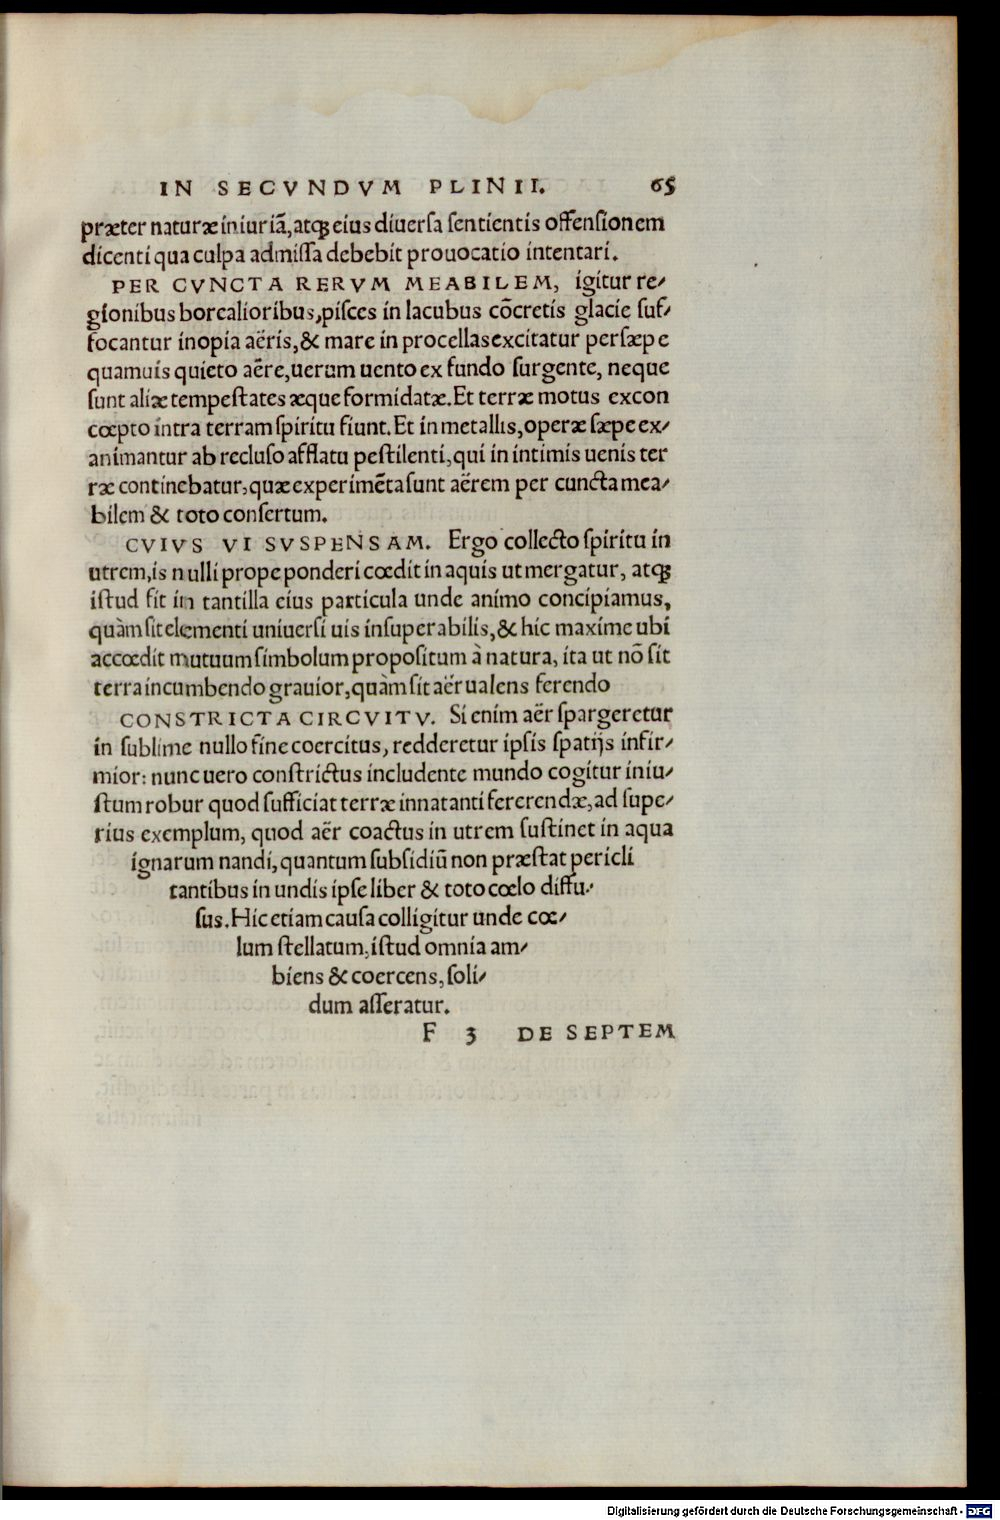 IN SECVNDVM PLINII. 65
præter naturæ iniuriã, atqꝫ eius diuersa sentientis offensionem
dicenti qua culpa admissa debebit prouocatio intentari.
PER CVNCTA RERVM MEABILEM, igitur re⸗
gionibus borealioribus, pisces in lacubus cõcretis glacie suf⸗
focantur inopia aëris, & mare in procellas excitatur persæpe
quamuis quieto aëre, uerum uento ex fundo surgente, neque
sunt aliæ tempestates æque formidatæ. Et terræ motus excon
cœpto intra terram spiritu fiunt. Et in metallis, operæ sæpe ex⸗
animantur ab recluso afflatu pestilenti, qui in intimis uenis ter
ræ continebatur, quæ experimẽta sunt aërem per cuncta mea⸗
bilem & toto consertum.
CVIVS VI SVSPENSAM. Ergo collecto spiritu in
utrem, is nulli prope ponderi cœdit in aquis ut mergatur, atqꝫ
istud fit in tantilla eius particula unde animo concipiamus,
quàm sit elementi uniuersi uis insuperabilis, & hic maxime ubi
accœdit mutuum simbolum propositum à natura, ita ut nõ sit
terra incumbendo grauior, quàm sit aër ualens ferendo
CONSTRICTA CIRCVITV. Si enim aër spargeretur
in sublime nullo fine coercitus, redderetur ipsis spatijs infir⸗
mior: nunc uero constrictus includente mundo cogitur in iu⸗
stum robur quod sufficiat terræ innatanti fererendæ, ad supe⸗
rius exemplum, quod aër coactus in utrem sustinet in aqua
ignarum nandi, quantum subsidiũ non præstat pericli
tantibus in undis ipse liber & toto cœlo diffu⸗
sus. Hic etiam causa colligitur unde cœ⸗
lum stellatum, istud omnia am⸗
biens & coercens, soli⸗
dum asseratur.
F 3 DE SEPTEM
Digitalisierung gefördert durch die Deutsche Forschungsgemeinschaft - DFG